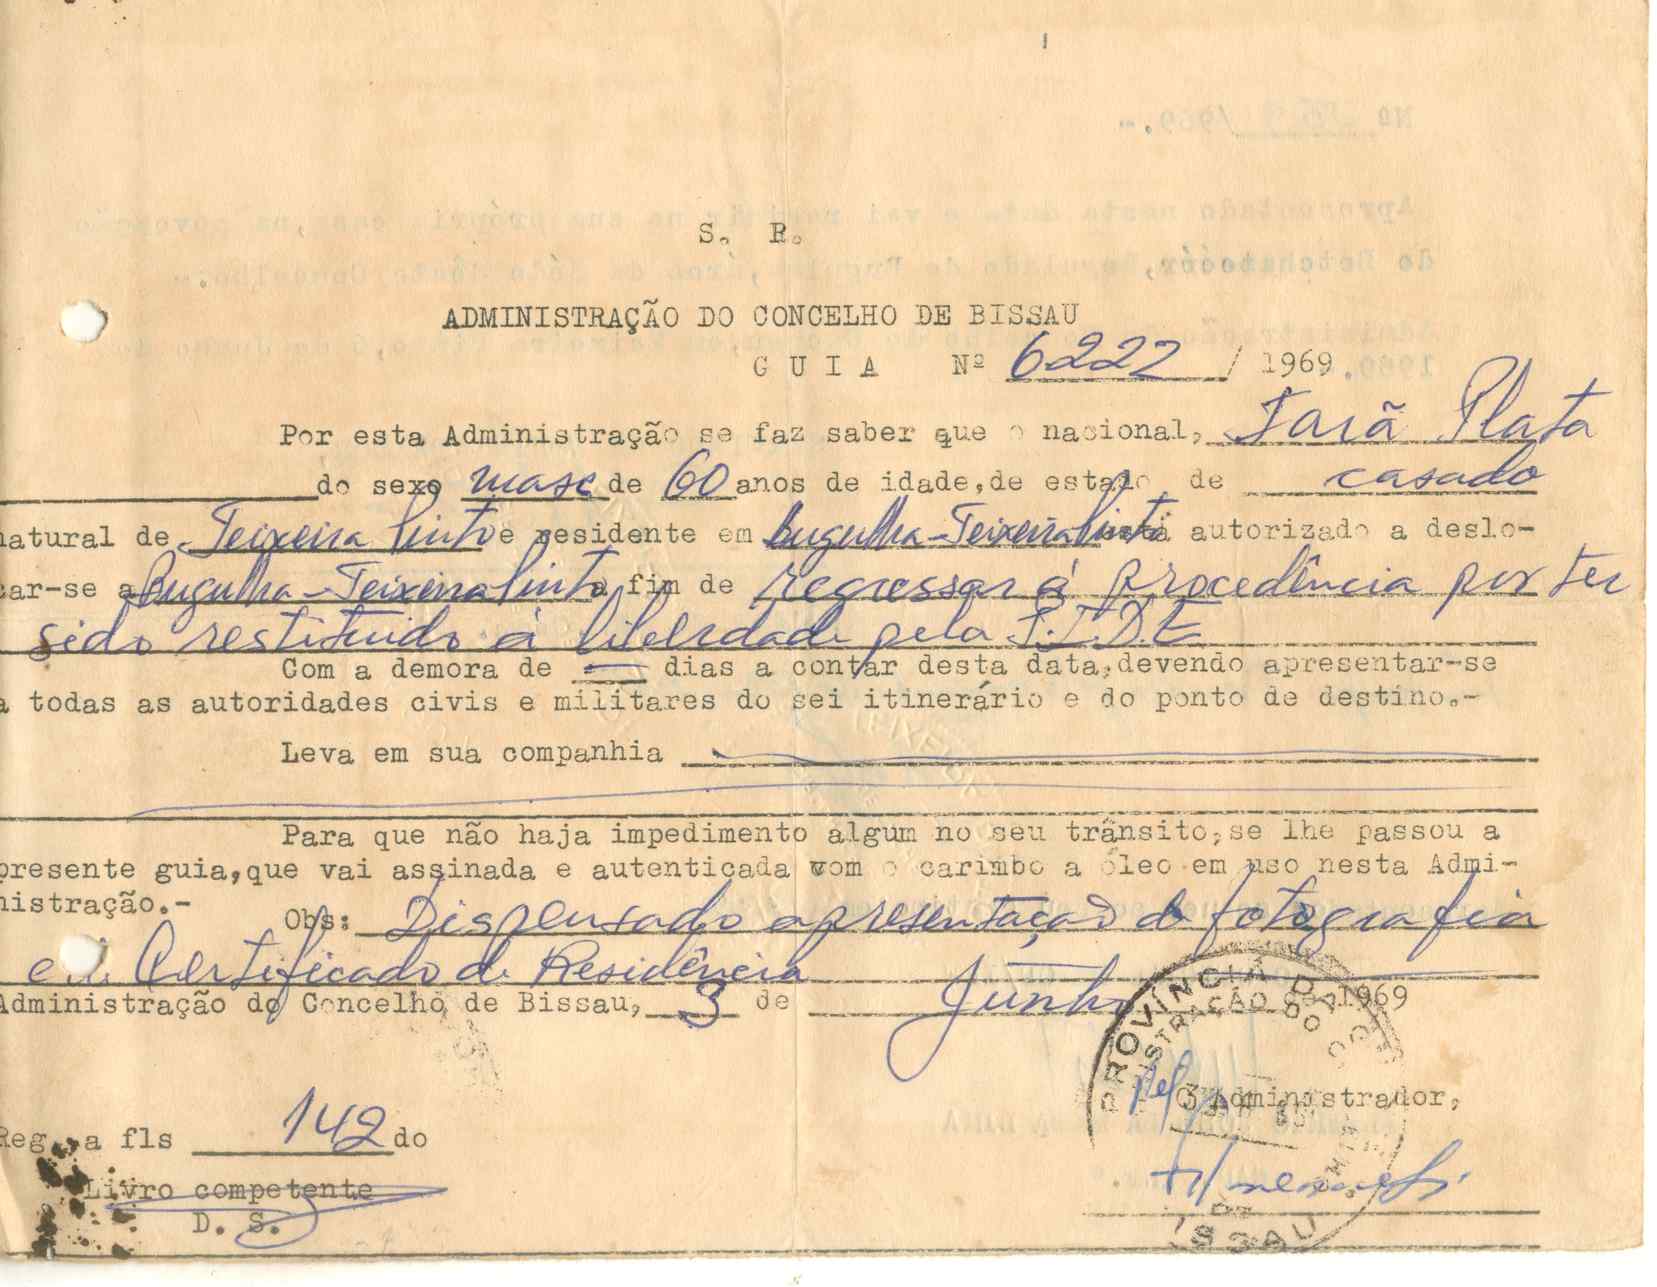 S. R.
ADMINISTRAÇÃO DO CONCELHO DE BISSAU
GUIA Nº 6222 / 1969
Por esta Administração se faz saber que o nacional, Plata
do sexo masc de 60 anos de idade, de estado de casado
natural de Teixeira Pinto e residente em Bugulha-Teixeira Pinto está autorizado a deslo-
car-se a Bugulha-Teixeira Pinto a fim de regressar á procedência por ter
sido restituido á liberdade pela P.I.D.E
Com a demora de dias a contar desta data, devendo apresentar-se
a todas as autoridades civis e militares do sei itinerário e do ponto de destino.-
Leva em sua companhia
Para que não haja impedimento algum no seu trânsito, se lhe passou a
presente guia, que vai assinada e autenticada com o carimbo a óleo em uso nesta Admi-
nistração.-
Obs: Dispensado apresentação de fotografia
e Certificado de Residência
Administração do Concelho de Bissau, 3 de Junho de 1969
PROVÍNCIA DA
BISSAU
Pel O Administrador,
Reg. a fls 142 do
Livro competente
D. S.